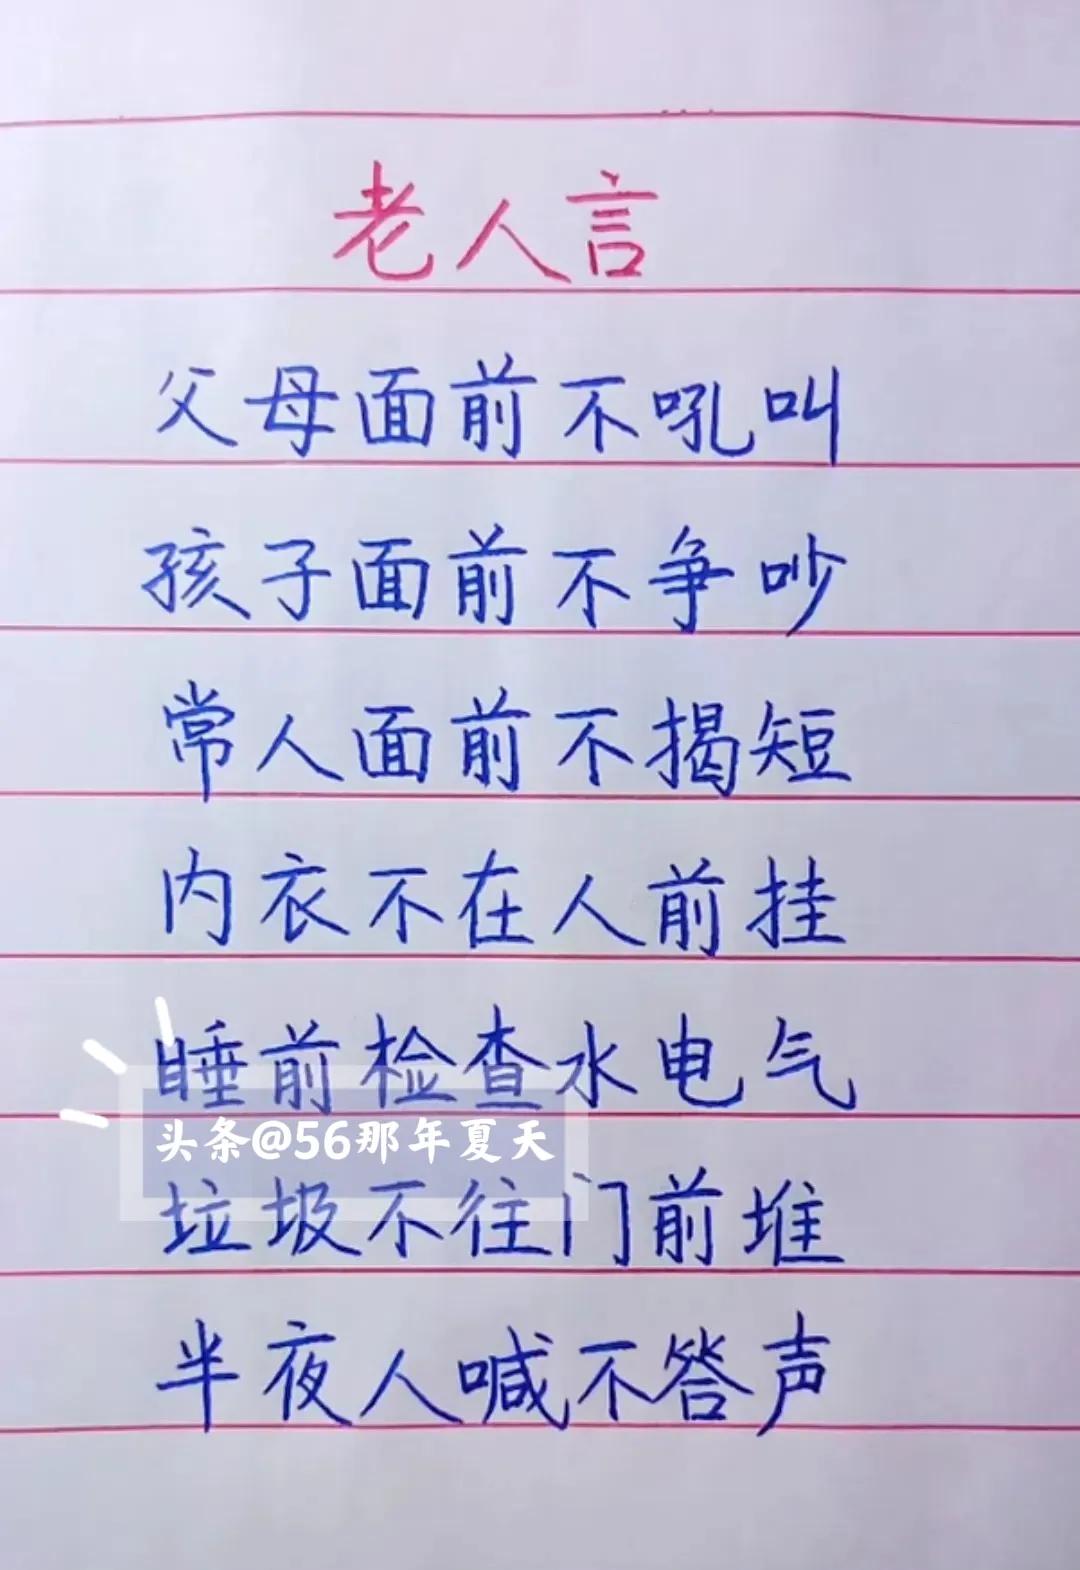 老人言
父母面前不吼叫
孩子面前不争吵
常人面前不揭短
内衣不在人前挂
睡前检查水电气
头条@56那年夏天
垃圾不往门前堆
半夜人喊不答声